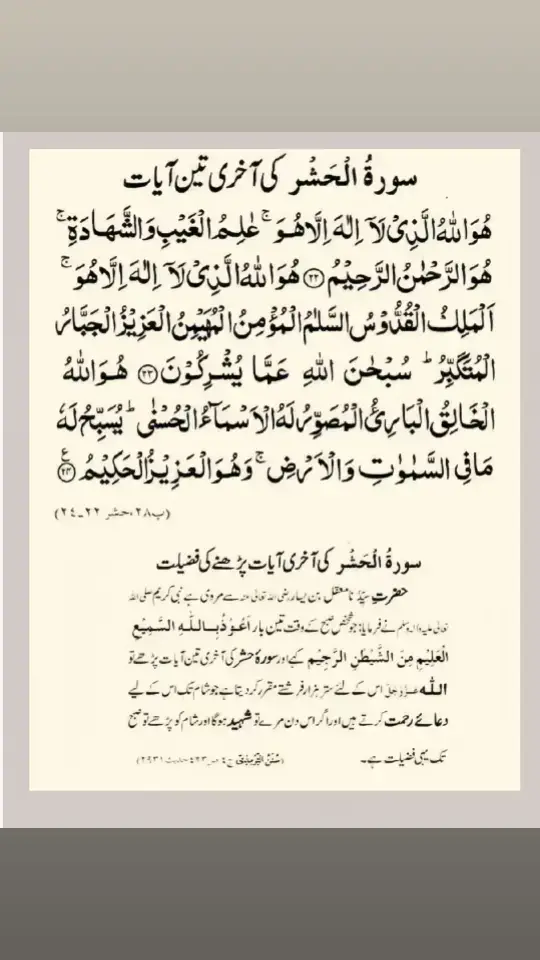 سورۃُ الْحَشْر کی آخری تین آیات
هُوَاللّٰهُ الَّذِیْ لَاۤ اِلٰهَ اِلَّا هُوَ ۚ عٰلِمُ الْغَیْبِ وَالشَّهَادَةِ ۚ
هُوَ الرَّحْمٰنُ الرَّحِیْمُ ﴿۲۲﴾ هُوَ اللّٰهُ الَّذِیْ لَاۤ اِلٰهَ اِلَّا هُوَ ۚ
اَلْمَلِكُ الْقُدُّوْسُ السَّلٰمُ الْمُؤْمِنُ الْمُهَیْمِنُ الْعَزِیْزُ الْجَبَّارُ
الْمُتَكَبِّرُ ؕ سُبْحٰنَ اللّٰهِ عَمَّا یُشْرِكُوْنَ ﴿۲۳﴾ هُوَ اللّٰهُ
الْخَالِقُ الْبَارِئُ الْمُصَوِّرُ لَهُ الْاَسْمَآءُ الْحُسْنٰی ؕ یُسَبِّحُ لَهٗ
مَا فِی السَّمٰوٰتِ وَ الْاَرْضِ ۚ وَهُوَ الْعَزِیْزُ الْحَكِیْمُ ﴿۲۴﴾ ع
(پ۲۸، حشر ۲۲۔۲۴)
سورۃُ الْحَشْر کی آخری آیات پڑھنے کی فضیلت
حضرتِ سیِّدُنا معقل بن یسار رضی اللہ تعالیٰ عنہ سے مروی ہے نبی کریم صلی اللہ
تعالیٰ علیہ والہ وسلم نے فرمایا: جو شخص صبح کے وقت تین بار اَعُوْذُ بِاللّٰہِ السَّمِیْعِ
الْعَلِیْمِ مِنَ الشَّیْطٰنِ الرَّجِیْمِ کہے اور سورۂ حشر کی آخری تین آیات پڑھے تو
اللّٰہ عَزَّوَجَلَّ اس کے لئے ستر ہزار فرشتے مقرر کر دیتا ہے جو شام تک اس کے لیے
دعائے رحمت کرتے ہیں اور اگر اس دن مرے تو شہید ہوگا اور شام کو پڑھے تو صبح
تک یہی فضیلت ہے۔ (سُنَنُ التِّرْمِذِی ج٤ ص ٤٢٣ حدیث ٢٩٣١)